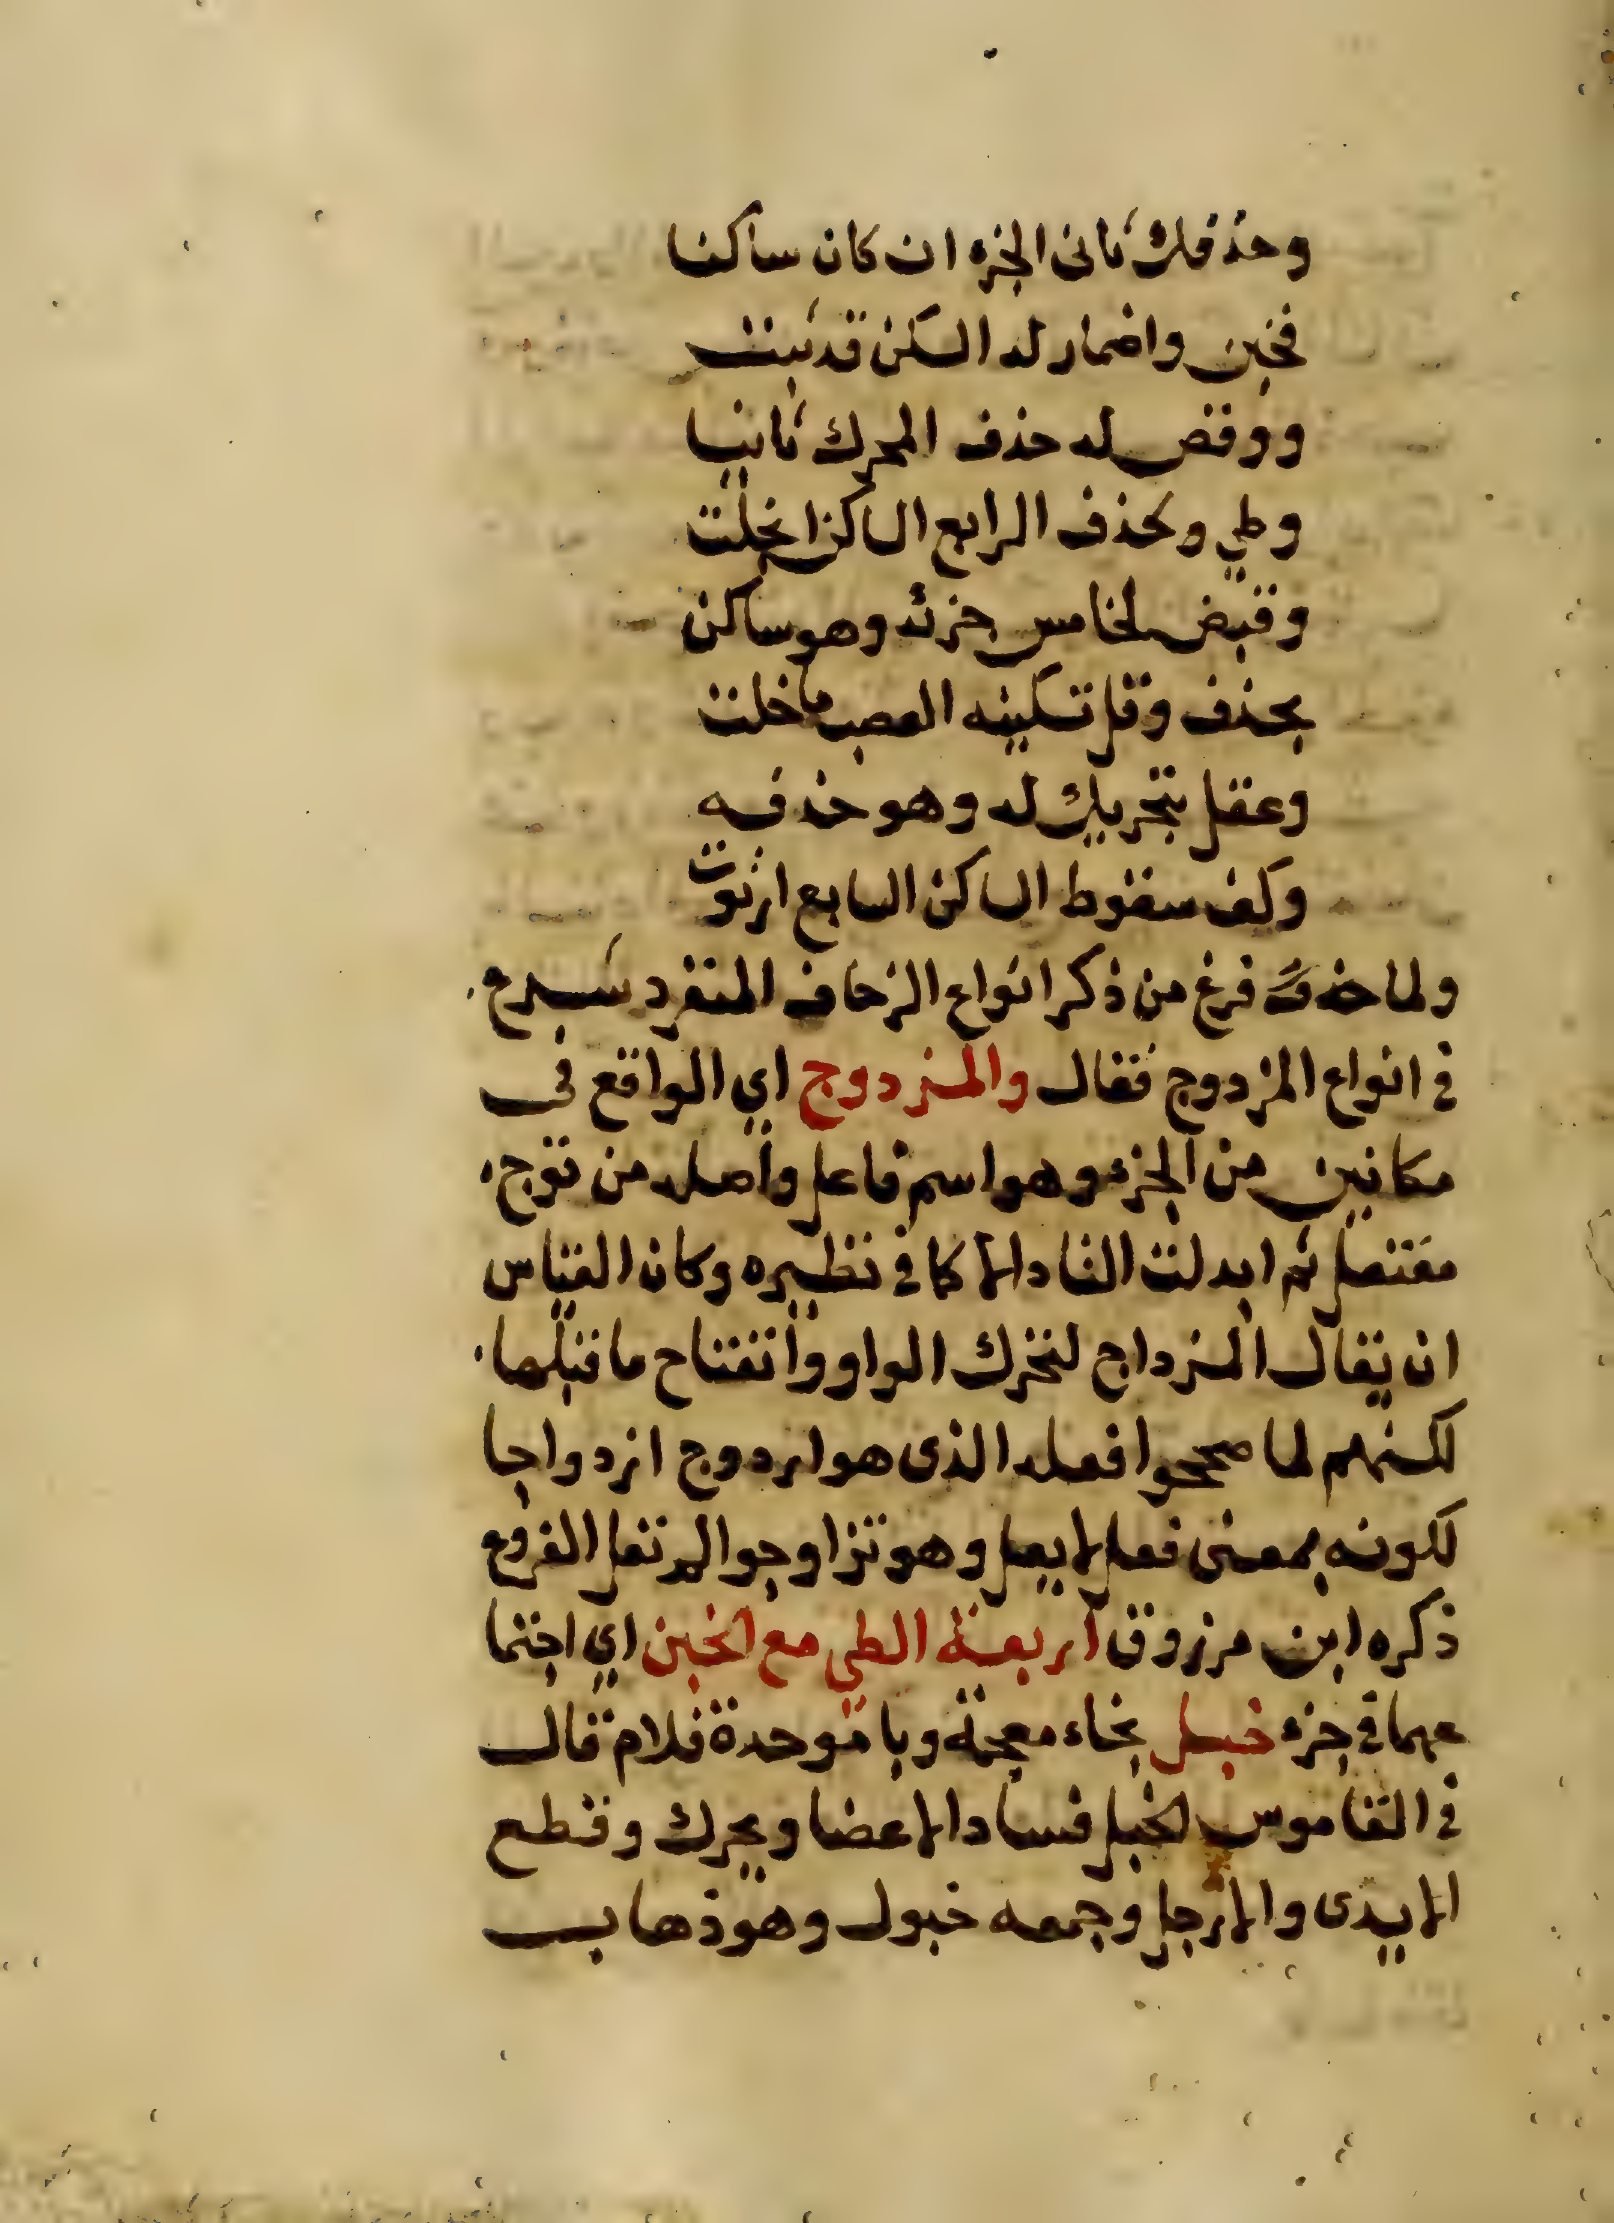 وحذفك ثانى الجزء ان كان ساكنا
فخبن واضمار له السكن قد ثبت
ووقص له حذف المحرك ثانيا
وطي وبحذف الرابع الساكن انجلت
وقبض لخامس جزئه وهو ساكن
بحذف وقل تسكينه العصب ما خلت
وعقل بتحريك له وهو حذفه
وكف سقوط الساكن السابع ارتوت
ولما فرغ من ذكر انواع الزحاف المنفرد شرع
في انواع المزدوج فقال والمزدوج اي الواقع فى
مكانين من الجزء وهو اسم فاعل واصله من توج
مفتعل ثم ابدلت التا دالا كما في نظيره وكان القياس
ان يقال المزداج لتحرك الواو وانفتاح ما قبلها
لكنهم لما صححوا فعله الذى هو ازدوج ازدواجا
لكونه بمعنى فعل لا يعل وهو تزاوجوا لم تعل الفروع
ذكره ابن مرزوق اربعة الطي مع الخبن اي اجتما
عهما في جزء خبل بخاء معجمة وبا موحدة فلام قال
في القاموس الخبل فساد الاعضا ويحرك وقطع
الايدى والارجل وجمعه خبول وهو ذهاب